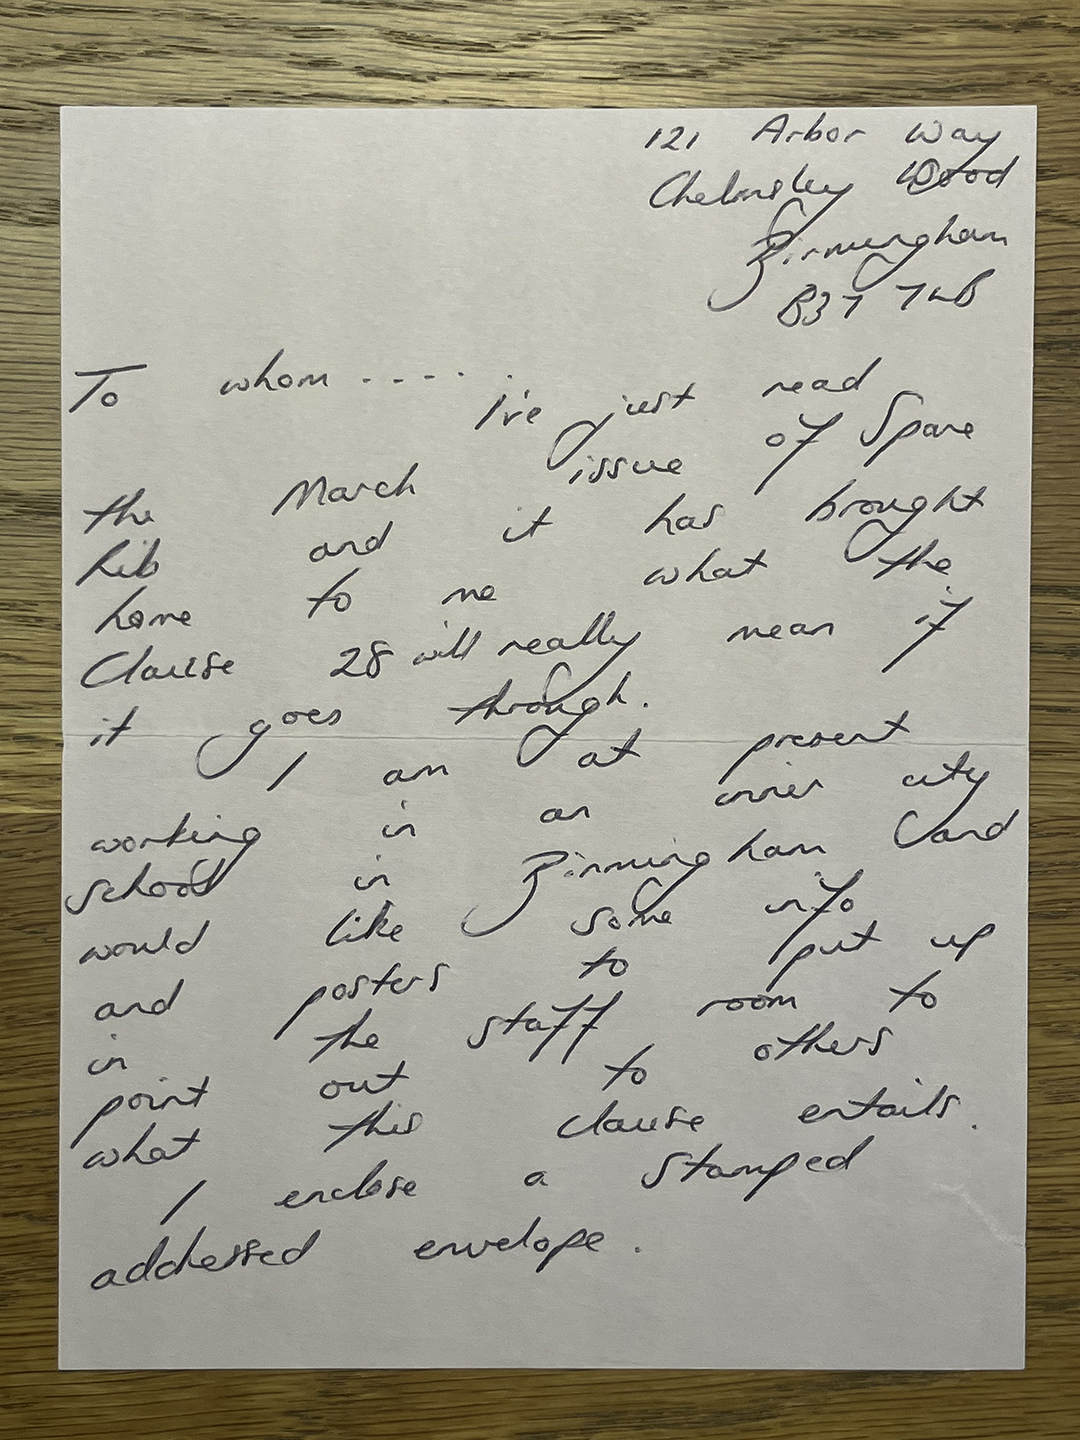 121 Arbor Way
Chelmsley Wood
Birmingham
B37 7LB
To whom .....
I've just read
the March issue of Spare
Rib and it has brought
home to me what the
Clause 28 will really mean if
it goes through.
I am at present
working in an inner city
school in Birmingham and
would like some info
and posters to put up
in the staff room to
point out to others
what this clause entails.
I enclose a stamped
addressed envelope.